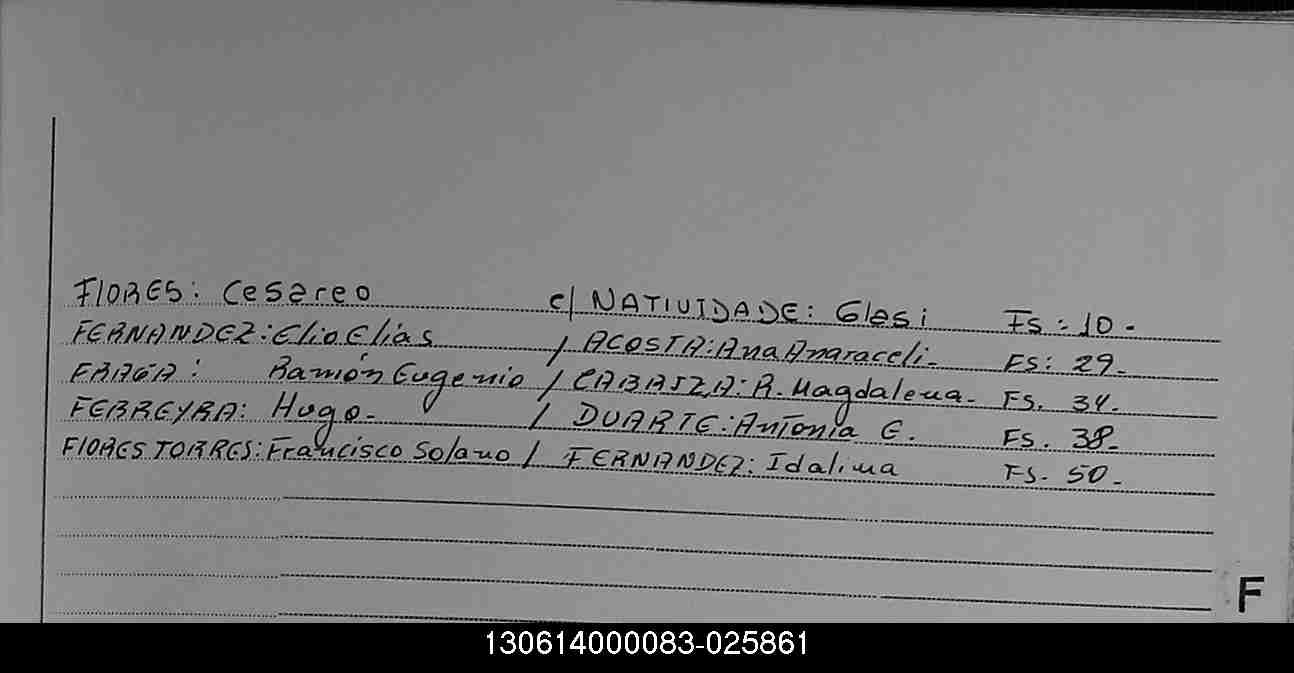 FlORES: Cesareo c/ NATIVIDADE: Glesi Fs: 10.-
FERNANDEZ: Elio Elias / ACOSTA: Ana Anaraceli- FS: 29-
FRAGA: Ramón Eugenio / CABAIZA: R. Magdalena- FS. 34-
FERREYRA: Hugo- / DUARTE: Antonia E. FS. 38-
FlORES TORRES: Francisco Solano / FERNANDEZ: Idalina FS. 50-
F
130614000083-025861